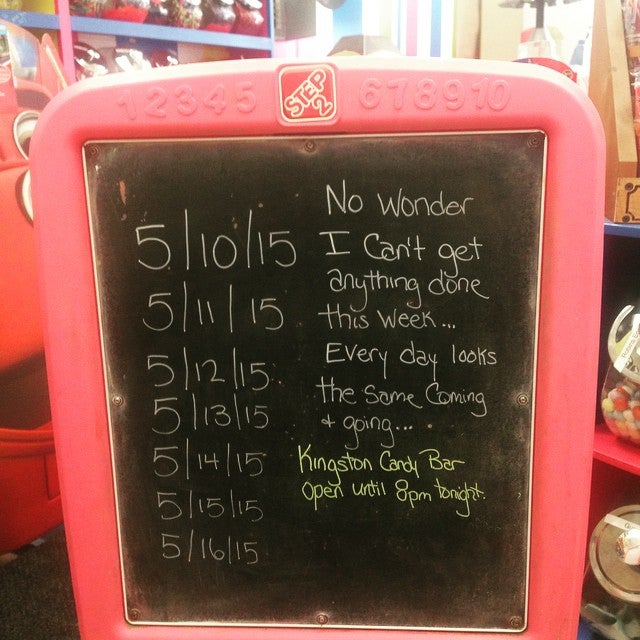 12345
STEP
2
678910
5/10/15
5/11/15
5/12/15
5/13/15
5/14/15
5/15/15
5/16/15
No Wonder
I Can't get
anything done
this week...
Every day looks
the same Coming
+ going...
Kingston Candy Bar
Open until 8pm tonight.